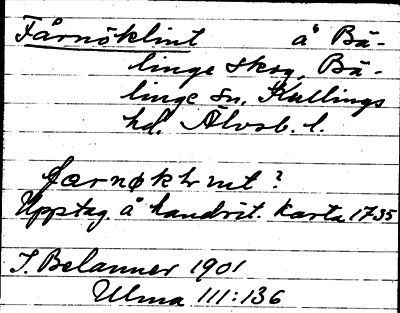 Fårnöklint å Bä-
linge skog, Bä-
linge sn, Kullings
hd, Älvsb. l.
?
Upptag. å handrit. karta 1735
J. Belanner 1901
Ulma 111:136